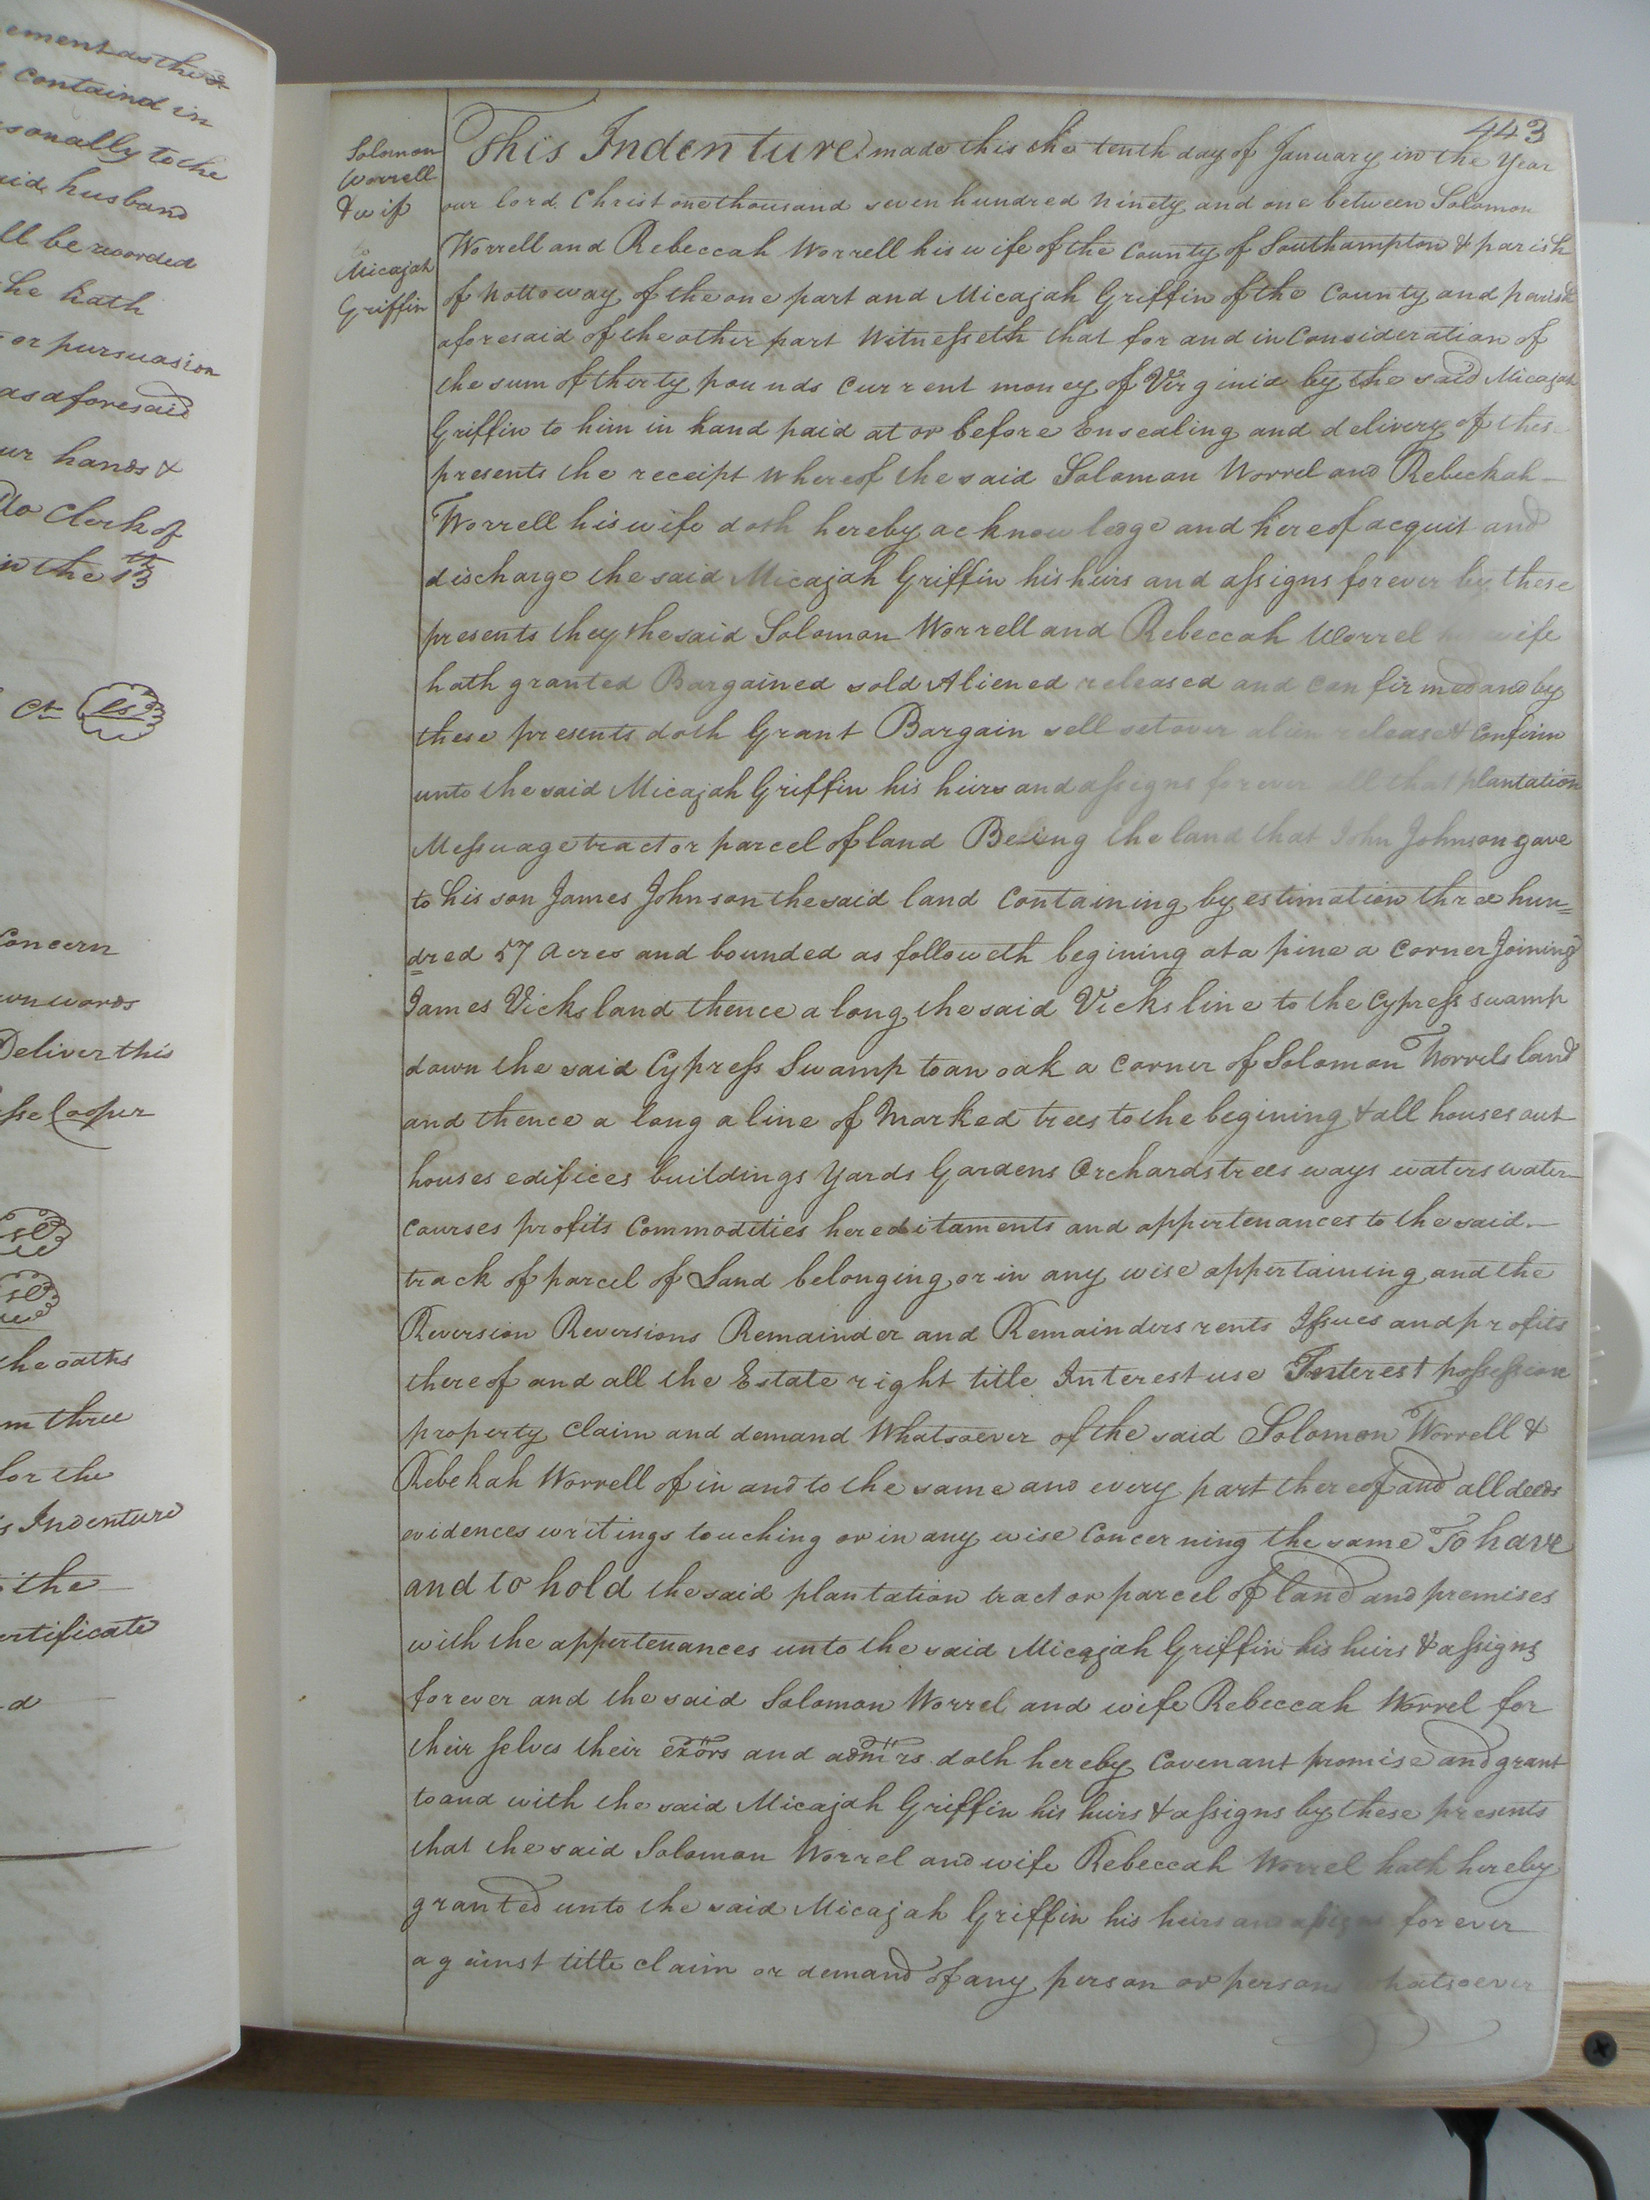 ement as the &
contained in
sonally to the
aid husband
ll be recorded
he hath
or pursuasion
as aforesaid
ur hands &
Clerk of
in the 13th
Ct. LS
Concern
own words
Deliver this
sse Cooper
LS
LS
the oaths
m three
for the
s Indenture
the
ertificate
d
443
Solomon
Worrell
& wif
Micajah
Griffin
This Indenture made this the tenth day of January in the Year
our lord Christ one thousand seven hundred ninety and one between Solomon
Worrell and Rebeccah Worrell his wife of the County of Southampton & parish
of Nottoway of the one part and Micajah Griffin of the County and parish
aforesaid of the other part Witnesseth that for and in Consideration of
the sum of therty pounds Current money of Virginia by the said Micajah
Griffin to him in hand paid at or before Ensealing and delivery of these
presents the receipt whereof the said Solomon Worrel and Rebeckah
Worrell his wife doth hereby acknowledge and hereof acquit and
discharge the said Micajah Griffin his heirs and assigns forever by these
presents they the said Solomon Worrell and Rebeccah Worrel his wife
hath granted Bargained sold Aliened released and confirmed and by
these presents doth Grant Bargain sell set over alien release & Confirm
unto the said Micajah Griffin his heirs and assigns forever all that plantation
Messuage tract or parcel of land Being the land that John Johnson gave
to his son James Johnson the said land Containing by estimation three hun=
=dred 57 acres and bounded as followeth begining at a pine a Corner Joining
James Vicks land thence a long the said Vicks line to the Cypress swamp
down the said Cypress Swamp to an oak a Corner of Solomon Worrels land
and thence a long a line of Marked trees to the begining & all houses out
houses edifices buildings Yards Gardens Orchards trees ways waters water
Courses profits Commodities hereditaments and appertenances to the said
track of parcel of Land belonging or in any wise appertaining and the
Reversion Reversions Remainder and Remainders rents Issues and profits
thereof and all the Estate right title Interest use Interest possession
property Claim and demand Whatsoever of the said Solomon Worrell &
Rebekah Worrell of in and to the same and every part thereof and all deeds
evidences writings touching or in any wise Concerning the same To have
and to hold the said plantation tract or parcel of land and premises
with the appertenances unto the said Micajah Griffin his heirs & assigns
forever and the said Solomon Worrel and wife Rebeccah Worrel for
their selves their exors and admrs doth hereby Covenant promise and grant
to and with the said Micajah Griffin his heirs & assigns by these presents
that the said Solomon Worrel and wife Rebeccah Worrel hath hereby
granted unto the said Micajah Griffin his heirs and assigns for ever
against title claim or demand of any person or persons whatsoever